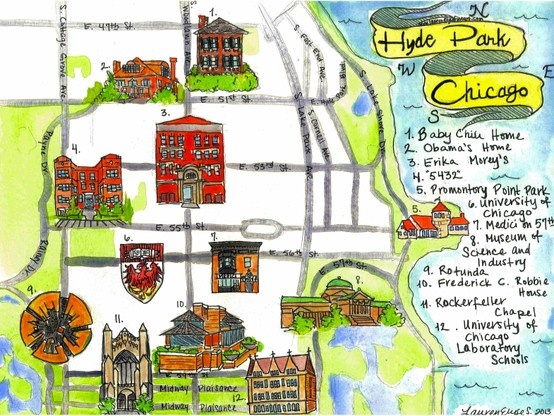 N
Hyde Park
W
E
Chicago
S
1. Baby Chiu Home
2. Obama's Home
3. Erika Morey's
4. "5432"
5. Promontory Point Park
6. University of
Chicago
7. Medici on 57th
8. Museum of
Science and
Industry
9. Rotunda
10. Frederick C. Robbie
House
11. Rockefeller
Chapel
12. University of
Chicago
Laboratory
Schools
S. Cottage Grove Ave.
E. 47th St.
S. Woodlawn Ave
S. East End Ave.
S. Lake Shore Dr.
1.
2.
E. 51st St.
E. Hyde Park
S. Lake Park Ave.
S. Cornell Ave.
3.
Payne Dr.
4.
E. 53rd St.
5.
E. 55th St.
6.
7.
E. 56th St.
E. 57th St.
8.
9.
10.
11.
Midway Plaisance
12.
Midway Plaisance